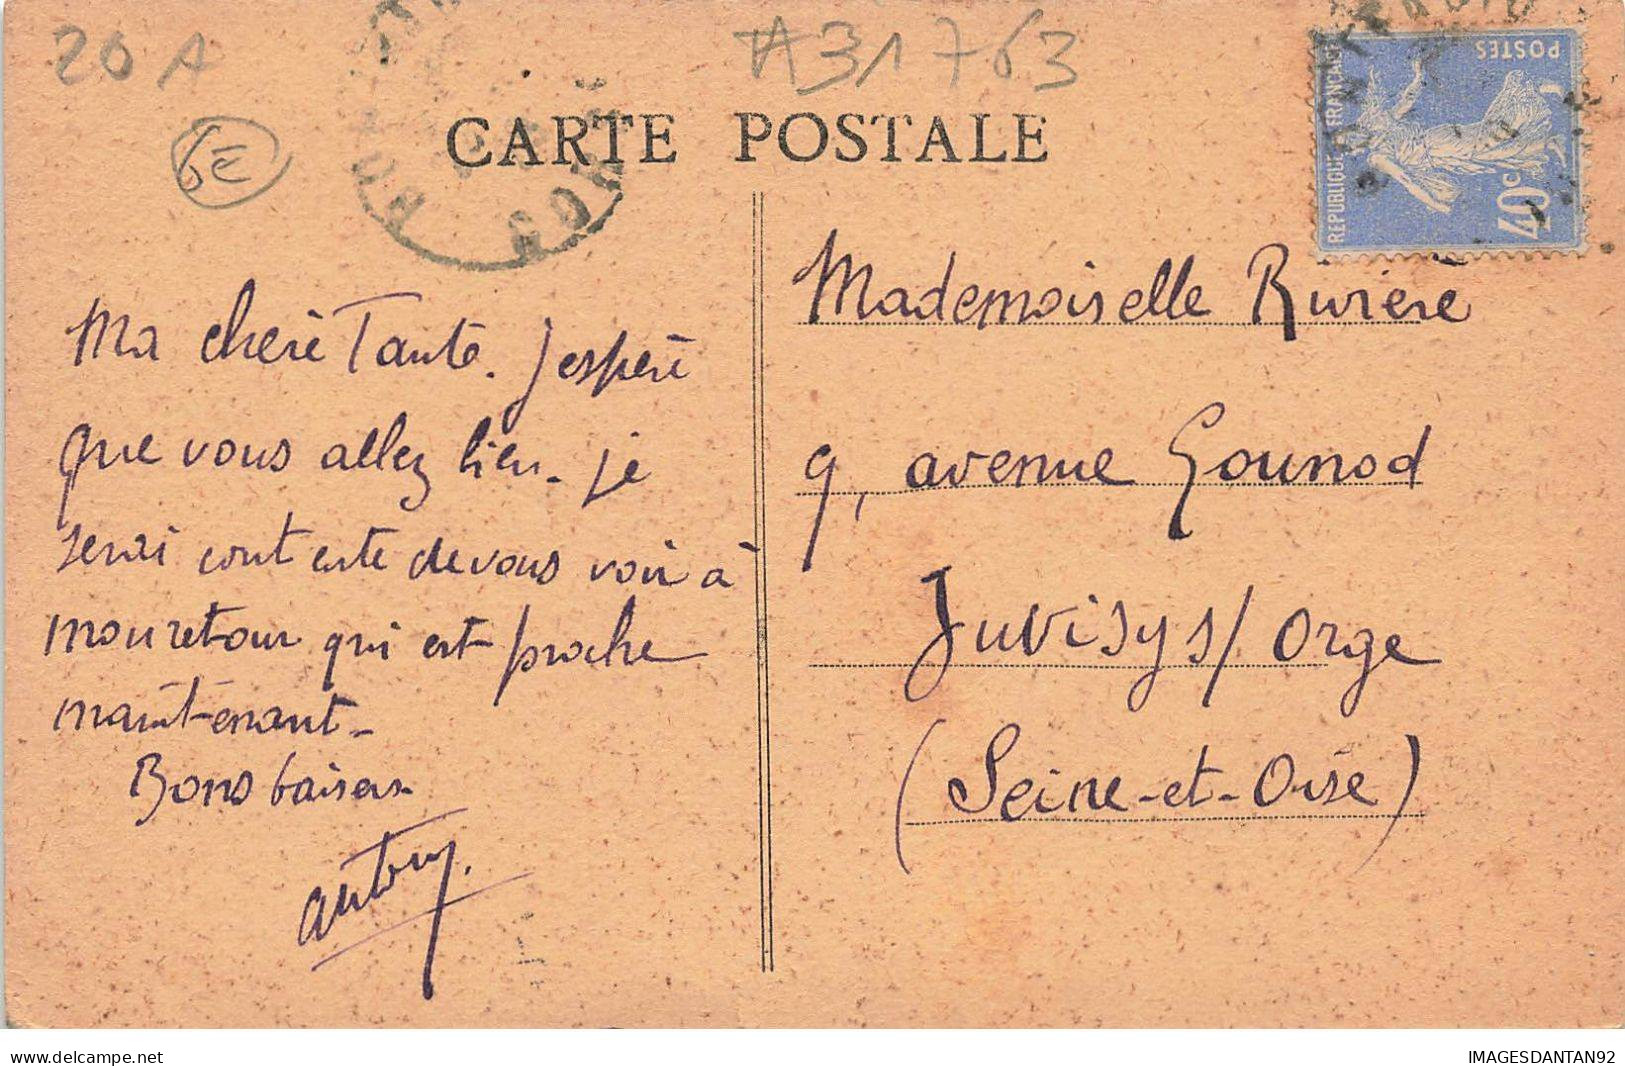 20 A
A31763
6E
CARTE POSTALE
REPUBLIQUE FRANCAISE
POSTES
40c
Ma chère Tante. J'espère
que vous allez bien. je
serai contente de vous voir à
mon retour qui est proche
maintenant.
Bons baisers
antony.
Mademoiselle Rivière
9, avenue Gounod
Juvisys/Orge
(Seine-et-Oise)
delcampe.net
IMAGESDANTAN92